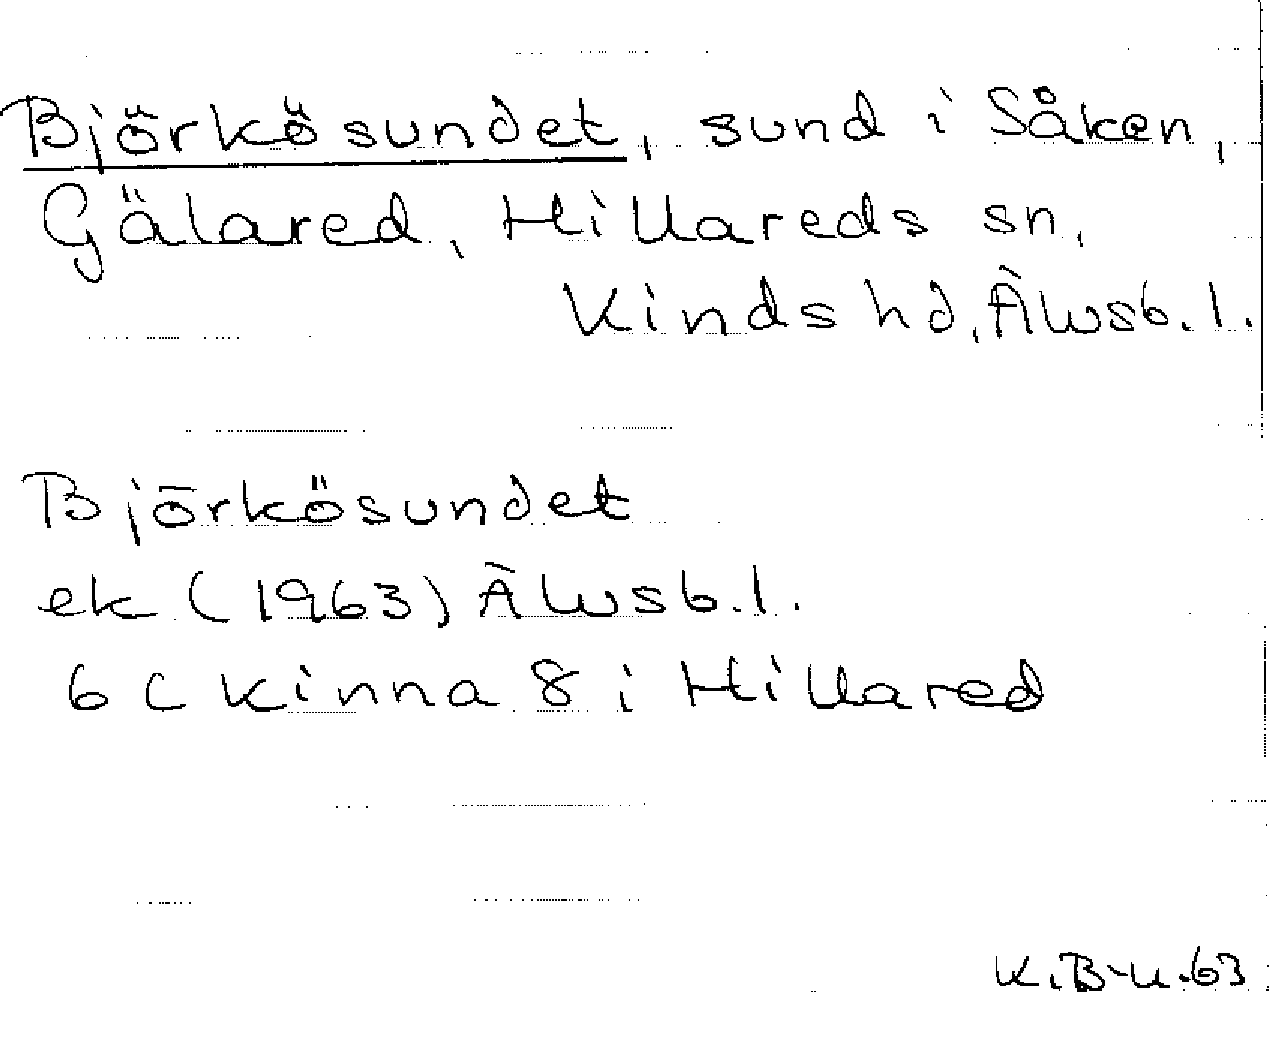 Björkösundet, sund i Såken,
Gälared, Hillareds sn,
Kinds hd, Älvsb. l.
Björkösundet
ek (1963) Älvsb. l.
6 C Kinna 8 i Hillared
K. B-u. 63